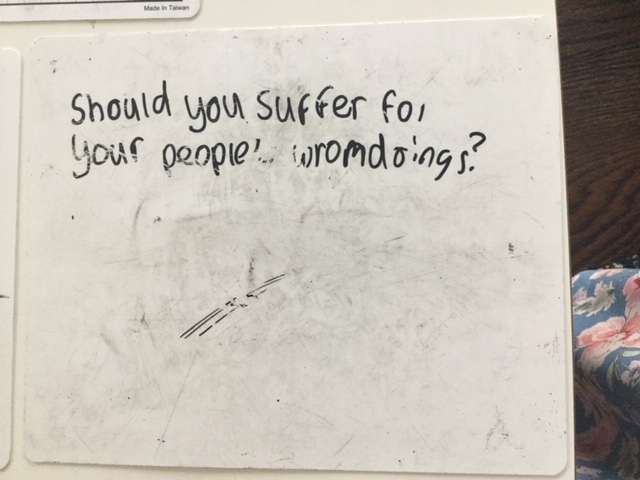 Made In Taiwan
Should you suffer for
your people's wromdoings?